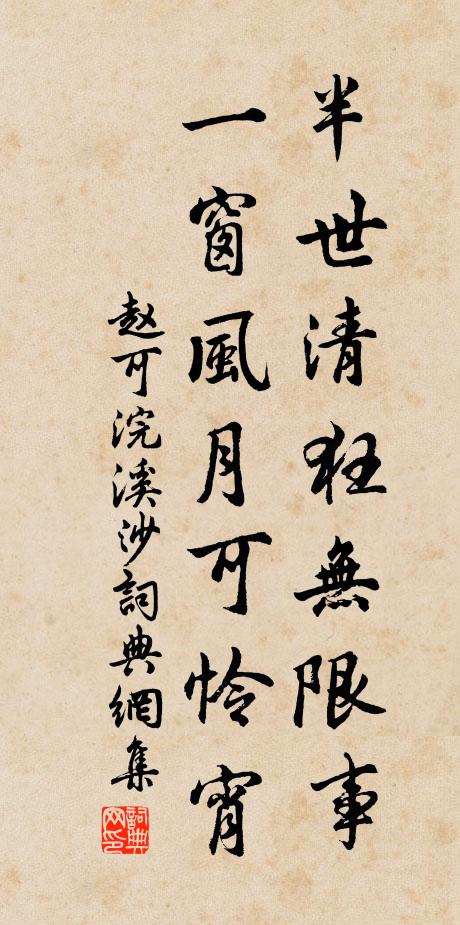 半世清狂無限事
一窗風月可怜宵
赵可浣溪沙詞典網集
詞典网印